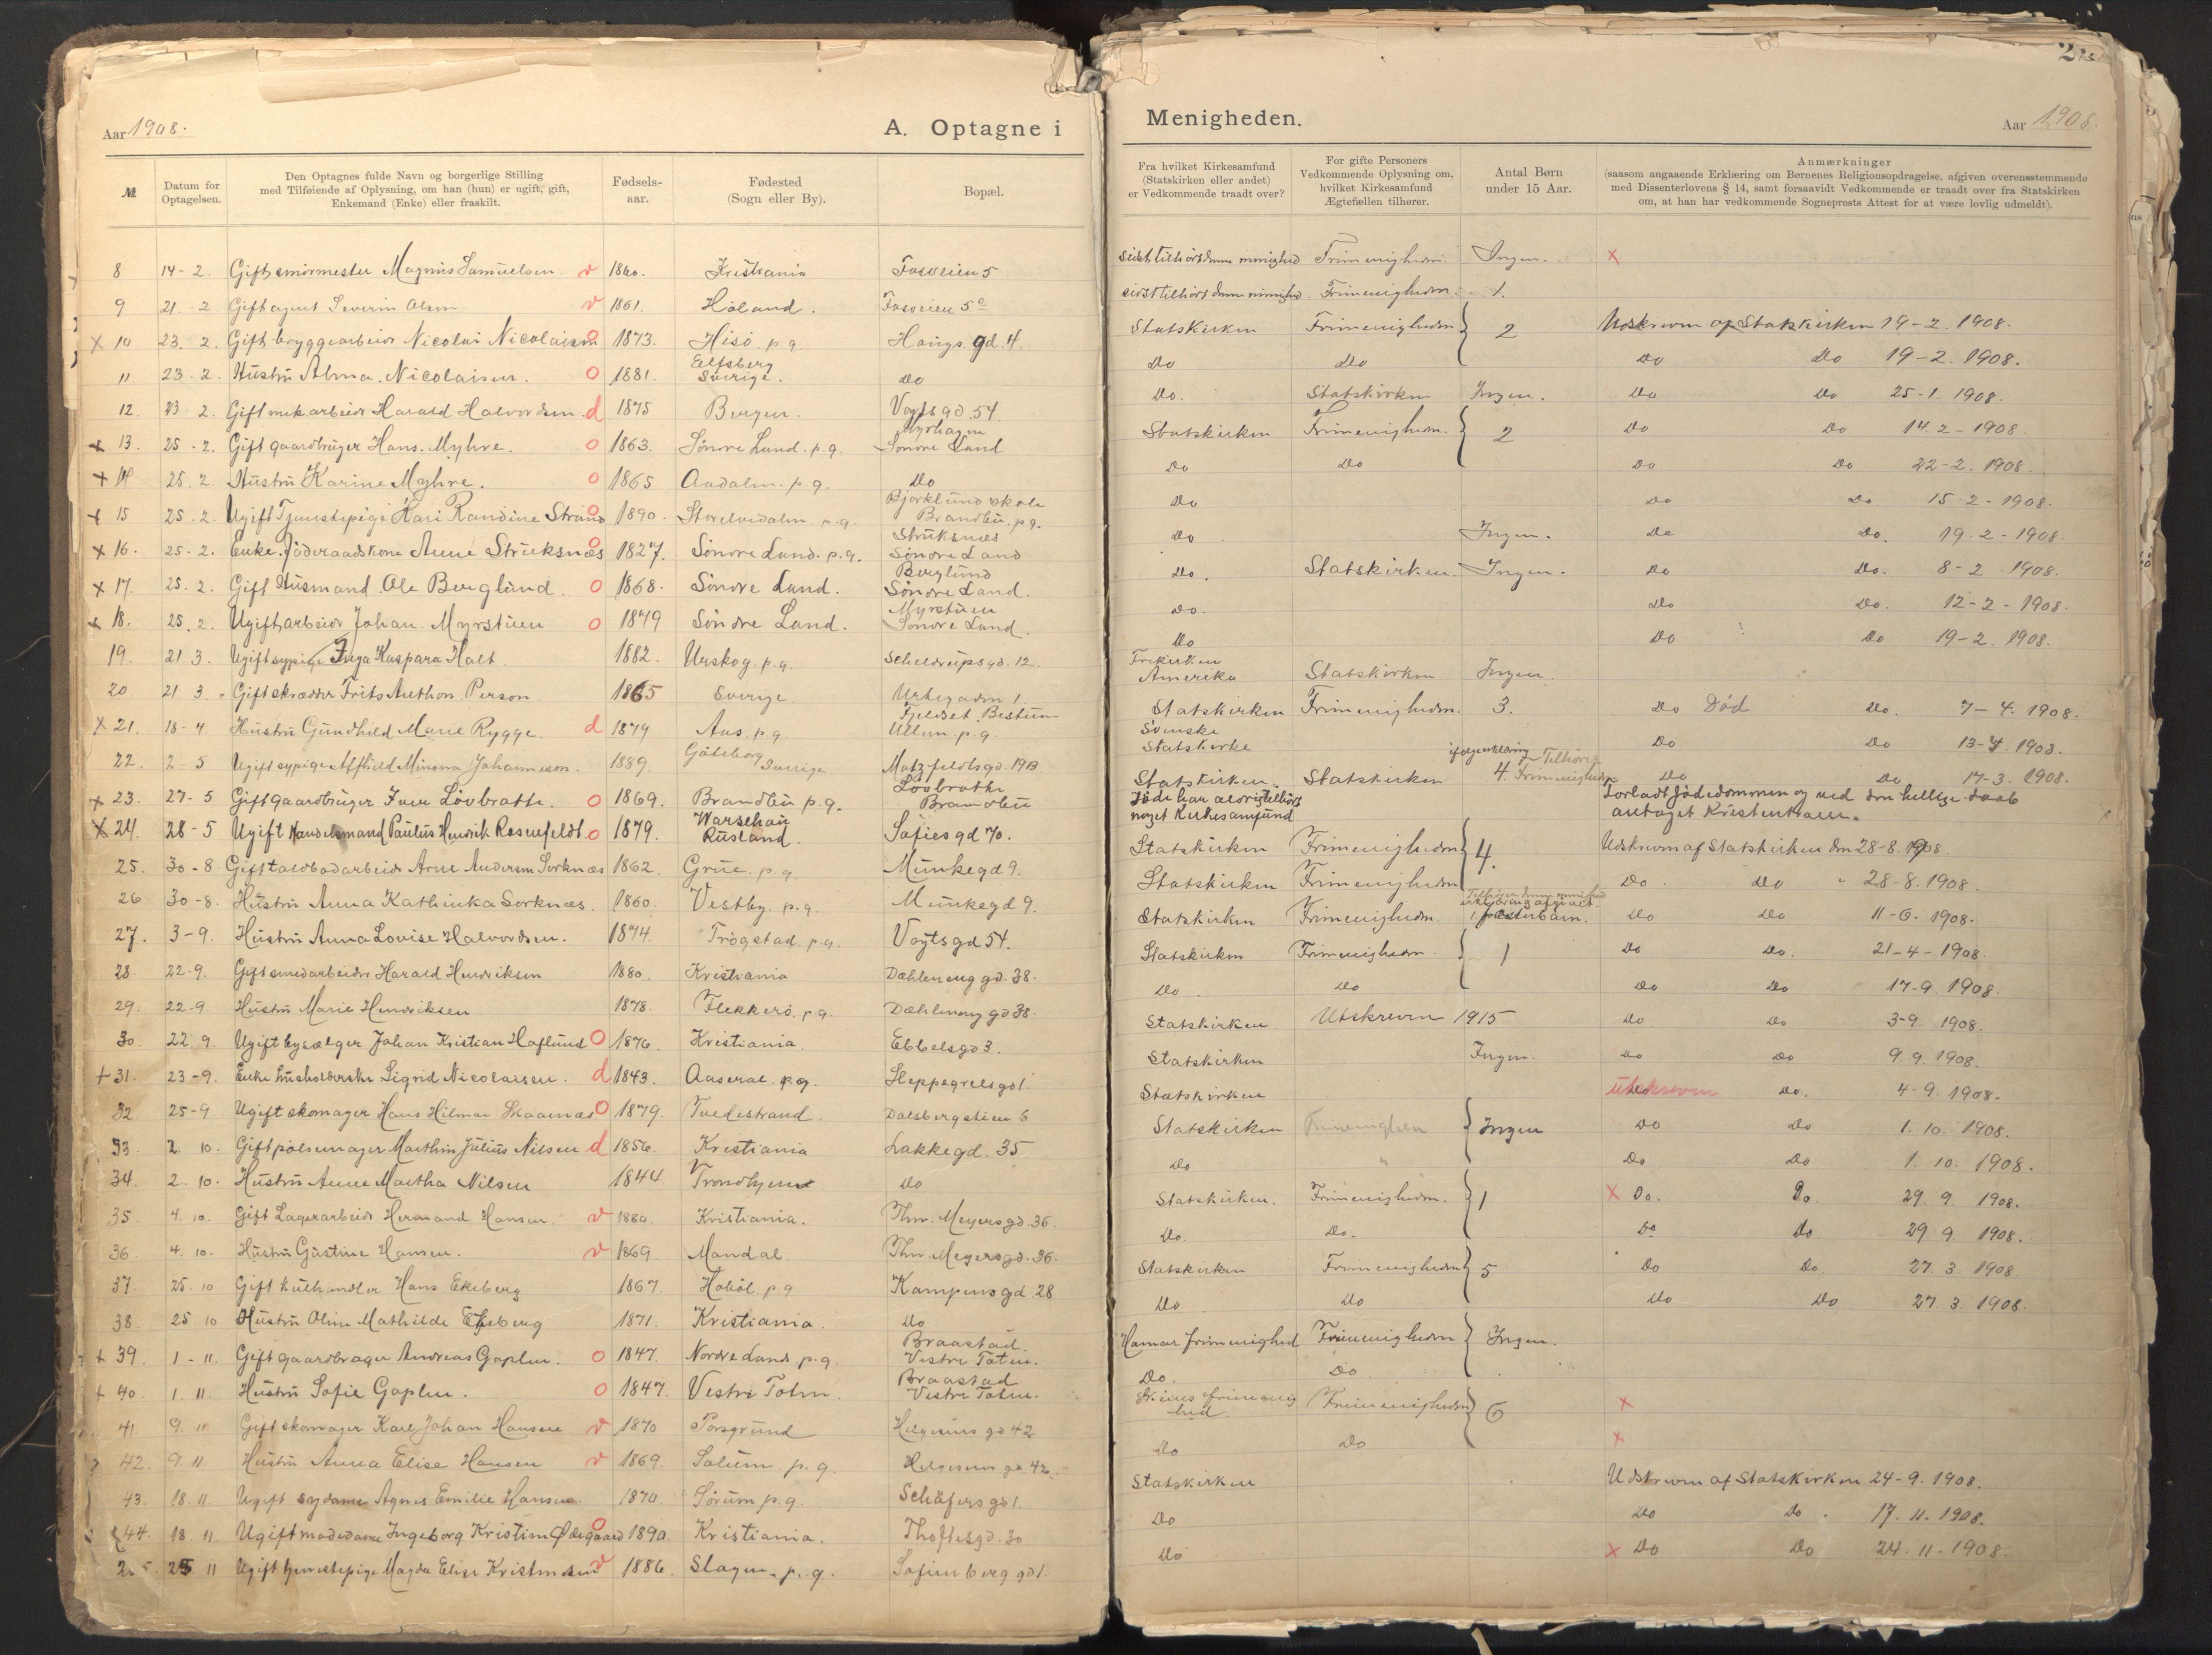 Aar 1908.
A. Optagne i
№
Datum for Optagelsen.
Den Optagnes fulde Navn og borgerlige Stilling
med Tilføiende af Oplysning, om han (hun) er ugift, gift,
Enkemand (Enke) eller fraskilt.
Fødsels-
aar.
Fødested
(Sogn eller By).
Bopæl.
8 14-2. Gift smörmester Magnus Samuelsen v 1860. Kristiania Fosveien 5
9 21-2 Gift agent Severin Olsen v 1861. Höland. Fosveien 5
x 10 23.2. Gift bryggearbeider Nicolai Nicolaisen o 1873. Hisö p.g. Haugs.gd.4
11 23.2. Hustru Alma Nicolaisen. o 1881. Elfsberg Sverige. Do
12. 23 2. Gift mek arbeider Harald Halvordsen d 1875 Bergen. Vogts gd.54.
x 13. 25-2. Gift gaardbruger Hans Myhre. o 1863. Söndre Land. p.g. Myrhagen Söndre Land
x 14 25.2. Hustru Karine Myhre. o 1865 Aadalen. p.g. Do
x 15 25-2. Ugift Tjenestepige Kari Randine Strand o 1890. Storelvedalen p.g. Bjorklund skole Brandbu. p.g.
x 16. 25-2. Enke. Föderaadskone Anne Struksnæs o 1827. Söndre Land. p.g. Struksnæs Söndre Land
x 17. 25.2. Gift Husmand Ole Berglund. o 1868. Söndre Land. Berglund Söndre Land.
x 18. 25.2. Ugift arbeider Johan Myrstuen o 1879 Söndre Land. Myrstuen Söndre Land.
19. 21.3. Ugift sypige Inga Kaspara Holt. 1882. Urskog. p.g. Scheldrupsgd. 12.
20. 21.3. Gift skrædder Frits Anthon Person 1865 Sverige. Urtegaden 1
x 21. 18-4 Hustru Gundhild Marie Rygge. d 1879 Aas. p.g. Fjeldset Bestun Ullern. p.g.
22. 2-5 Ugift sypige Alfhild Minona Johanneson. 1889. Göteborg Sverige Motzfeldtsgd. 19B
x 23. 27-5 Gift gaardbruger Iver Lövbrathe. o 1869. Brandbu p.g. Lövbrathe Brandbu
x 24. 28-5 Ugift Handelsmand Paulus Hendrik Rosenfeldt. o 1879. Warschau Rusland. Sofies gd 70.
25. 30-8 Gift Arne Andersen Sorknæs 1862. Grue. p.g. Munkegd 9.
26. 30-8. Hustru Anna Kathinka Sorknæs. 1860. Vestby. p.g. Munkegd 9.
27. 3-9. Hustru Anna Lovise Halvordsen. 1874. Trögstad. p.g. Vogtsgd 54.
28. 22-9. Gift smedarbeider Harald Hendriksen 1880. Kristiania Dæhleneng gd. 38.
29. 22-9. Hustru Marie Hendriksen 1878. Flekkerö. p.g. Dæhleneng gd 38.
30. 22.9. Ugift bysælger Johan Kristian Haflund o 1876. Kristiania. Ebbelsgd 3.
x 31. 23-9. Enke husholderske Sigrid Nicolaisen. d 1843. Aaseral. p.g. Steppegrelsgd 1.
32 25-9 Ugift skomager Hans Hilmar Skaanæs o 1879. Tvedestrand Dalsbergstien 6
33. 2.10. Gift pølsemager Marthin Julius Nilsen d 1856. Kristiania Lakkegd. 35
34. 2.10. Hustru Anne Martha Nilsen 1844 Trondhjem Do
35 4.10. Gift Lagerarbeider Hermand Hansen. v 1860. Kristiania. Thv. Meyersgd. 36.
36. 4.10. Hustru Gustine Hansen. v 1869. Mandal. Thv. Meyersgd. 36.
37. 25.10 Gift kulhandler Hans Ekeberg 1867. Haböl. p.g Kampensgd. 28
38. 25.10 Hustru Oline Mathilde Ekeberg 1871. Kristiania. Do
x 39. 1-11. Gift gaardbruger Andreas Gaplen. o 1847. Nordre Land. p.g. Braastad. Vestre Toten.
x 40. 1.11. Hustru Sofie Gaplen. o 1847. Vestre Toten. Braastad Vestre Toten.
41 9.11 Gift skomager Karl Johan Hansen v 1870 Porsgrund Helgesens gd 42
42. 9.11. Hustru Anna Elise Hansen v 1869. Solum. p.g. Helgesens gd 42.
43. 18.11 Ugift sydame Agnes Emilie Hansen. 1870. Sörum p.g. Schäfersgd 1.
44. 18.11. Ugift modedame Ingeborg Kristine Ödegaard o 1890. Kristiania. Thoftesgd. 30
25 11 Ugift tjenestepige Magda Elise Kristensen v 1886. Slagen. p.g. Sofienberg gd 1.
Menigheden.
Aar 1908.
Fra hvilket Kirkesamfund
(Statskirken eller andet)
er Vedkommende traadt over?
For gifte Personers
Vedkommende Oplysning om,
hvilket Kirkesamfund
Ægtefællen tilhører.
Antal Børn
under 15 Aar.
Anmærkninger
(saasom angaaende Erklæring om Børnenes Religionsopdragelse, afgiven overensstemmende
med Dissenterlovens § 14, samt forsaavidt Vedkommende er traadt over fra Statskirken
om, at han har vedkommende Sogneprests Attest for at være lovlig udmeldt).
sidst tilhört denne menighed Frimenigheden. Ingen. x
sidst tilhört denne menighed. Frimenigheden. 1.
Statskirken Frimenigheden 2 Udskreven af Statskirken 19-2. 1908.
Do Do Do Do 19-2. 1908.
Do. Statskirken Ingen. Do Do 25-1. 1908.
Statskirken Frimenigheden. 2 Do Do 14.2-1908.
Do Do Do Do 22-2. 1908.
Do Do Do. 15-2-1908.
Do Ingen. Do Do. 19.2-1908.
Do. Statskirken. Ingen. Do Do. 8-2 1908.
Do. Do Do. 12-2-1908.
Do Do Do 19-2. 1908.
Frikirken Amerika Statskirken Ingen.
Statskirken Frimenigheden. 3. Do Död Do. 7-4. 1908.
Svenske Statskirke Do Do 13-4. 1908.
Statskirken. Statskirken 4. ifölge erklæring Tilhörer Frimenigheden Do Do 17-3. 1908.
Jöde har aldrig tilhört
noget Kirkesamfund
Forladt Jödedommen og ved den hellige daab
antaget Kristentroen.
Statskirken Frimenigheden 4. Udskreven af Statskirken den 28-8. 1908.
Statskirken Frimenigheden Do. Do 28-8. 1908.
Statskirken Frimenigheden. Tilhörer denne menighed erklæring afgivet. 1. pleiebarn. Do Do 11-6. 1908.
Statskirken Frimenigheden 1 Do Do. 21-4-1908.
Do. Do Do Do 17-9. 1908.
Statskirken. Utskreven 1915 Do Do 3-9. 1908.
Statskirken Ingen. Do Do 9.9. 1908.
Statskirken Utskreven Do. 4-9. 1908.
Statskirken Frimenigheden Ingen Do Do 1.10. 1908.
Do " Do Do 1.10. 1908.
Statskirken. Frimenigheden. 1 x Do. Do. 29.9. 1908.
Do. Do. Do Do 29.9. 1908.
Statskirken Frimenigheden 5 Do Do. 27.3. 1908
Do Do Do Do 27.3. 1908.
Hamar frimenighed Frimenigheden Ingen.
Do. Do
Skiens frimenig
hed Frimenigheden 6 x
Do Do x
Statskirken Udskreven af Statskirken 24-9. 1908.
Do Do Do. 17.11. 1908.
Do x Do Do 24.11-1908.